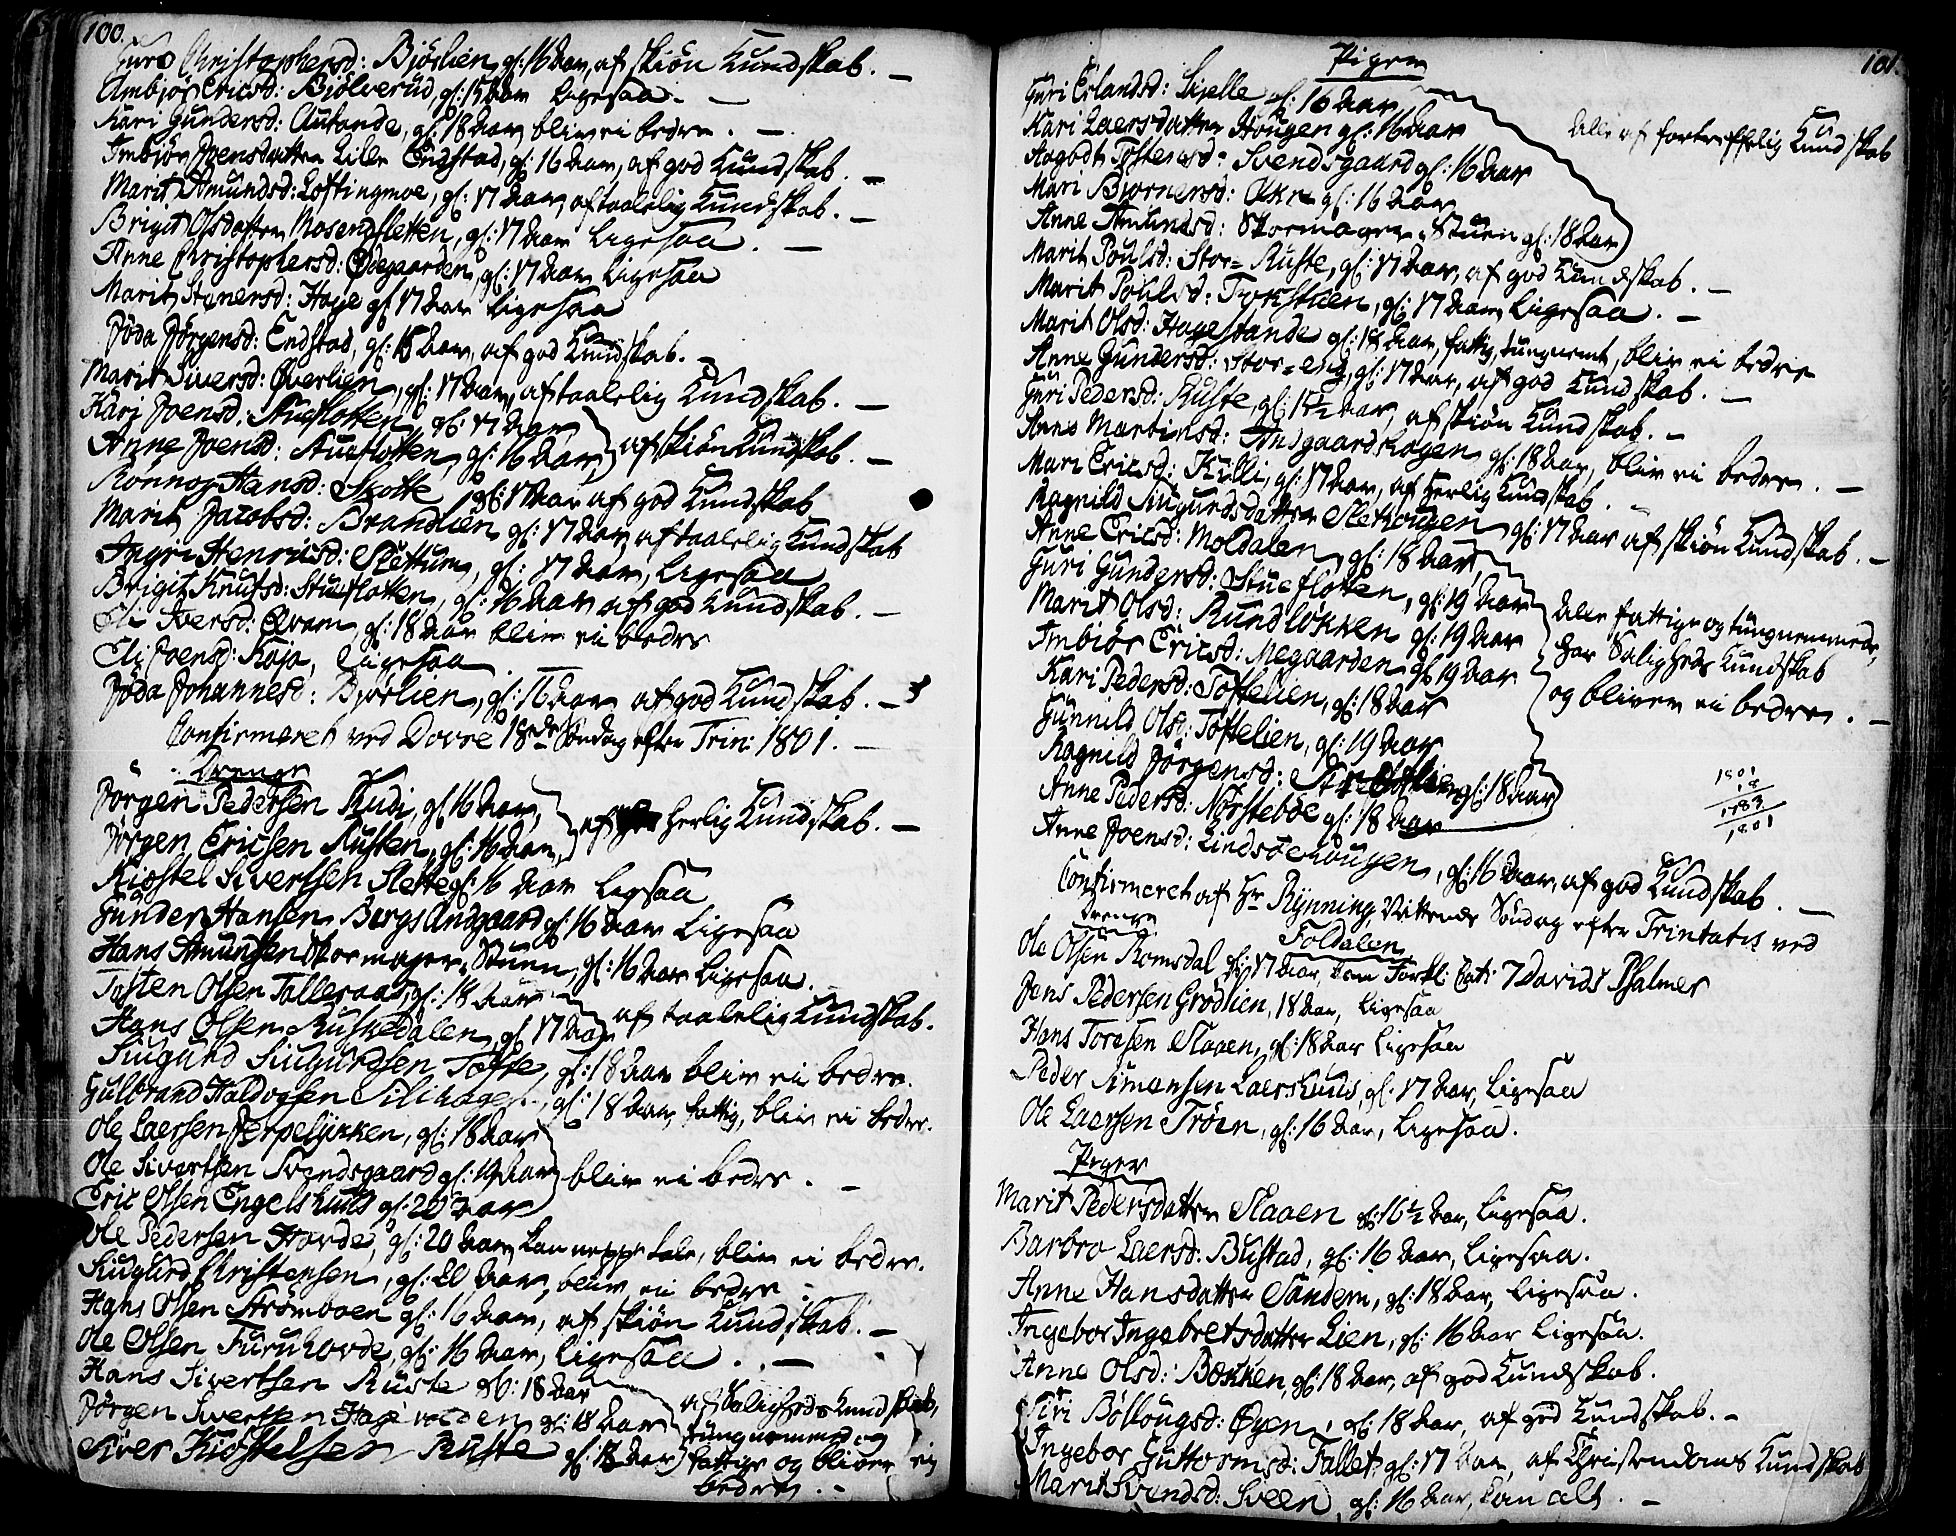 100.
Guro Christophersd: Bjørlien, gl: 16 Aar, af skiøn Kundskab. —
Ambjør Ericsd: Bjølverud, gl: 15 Aar Ligesaa. —
Kari Gundersd: Autande, gl: 18 Aar, bliver ei bedre. —
Imbjør Joensdatter Lille Endstad, gl: 16 Aar, af god Kundskab. —
Marit Amundsd: Loftingmoe, gl: 17 Aar, af taalelig Kundskab. —
Brigit Olsdatter Mosendsletten, gl: 17 Aar Ligesaa. —
Anne Christophersd: Ødegaarden, gl: 17 Aar, Ligesaa
Marit Stenersd: Hage gl: 17 Aar Ligesaa
Jøda Jørgensd: Endstad, gl: 15 Aar, af god Kundskab. —
Marit Siversd: Øverlien, gl: 17 Aar, af taalelig Kundskab. —
Kari Joensd: Stueflotten, gl: 17 Aar
Anne Joensd: Stueflotten, gl: 16 Aar } af skiøn Kundskab. —
Rønnog Hansd: Skotte, gl: 17 Aar af god Kundskab
Marit Jacobsd: Brandlien gl: 17 Aar, af taalelig Kundskab
Ingri Henricsd: Slettum, gl: 17 Aar, Ligesaa
Brigit Knutsd: Stueflotten, gl: 16 Aar af god Kundskab. —
Eli Iversd: Qvam, gl: 18 Aar bliver ei bedre
Eli Joensd: Kaja, ligesaa.
Jøda Johannesd: Bjørlien, gl: 16 Aar af god Kundskab. —
Confirmeret ved Dovre 18de Søndag efter Trin: 1801. —
Drenge
Jørgen Pedersen Rudi, gl: 16 Aar,
Jørgen Ericsen Rusten, gl: 16 Aar, } af herlig Kundskab. —
Kiøstel Sivertsen Slette gl: 16 Aar Ligesaa
Gunder Hansen Bergs Andgaard gl: 16 Aar Ligesaa
Hans Amundsen Stormagor-Stuen, gl: 16 Aar Ligesaa.
Tosten Olsen Talleraas, gl: 18 Aar
Hans Olsen Ruskedalen, gl: 17 Aar } af taalelig Kundskab.
Siugurd Siugurdsen Tofte, gl: 18 Aar bliver ei bedre.
Gulbrand Haldorsen Silihagen, gl: 18 Aar, fattig, bliver ei bedre.
Ole Laersen Jerpeløkken, gl: 18 Aar
Ole Sivertsen Svendsgaard gl: 19 Aar } bliver ei bedre. —
Eric Olsen Engelshuus gl: 20 Aar
Ole Pedersen Hovde, gl: 20 Aar, kan neppe tale, bliver ei bedre.
Siugurd Christensen, gl: 20 Aar, bliver ei bedre
Hans Olsen Strømboen gl: 16 Aar, af skiøn Kundskab. —
Ole Olsen Furuhovde, gl: 16 Aar, Ligesaa. —
Hans Sivertsen Ruste gl: 18 Aar
Jørgen Sivertsen Hage gl: 18 Aar } af Saligheds Kundskab,
tungnemme og
Siver Kiøstelsen Ruste gl: 18 Aar } fattige og bliver ei
bedre. —
101.
Piger
Guri Erlandsd: Skjelle gl: 16 Aar,
Kari Laersdatter Hougen gl: 16 Aar
Alle af fortreffelig Kundskab
Aagodt Tostensd: Svendsgaard gl: 16 Aar
Mari Bjørnersd: Ækre gl: 16 Aar
Anne Amundsd: Stormagor-Stuen gl: 18 Aar
Marit Poulsd: Stor-Ruste, gl: 17 Aar, af god Kundskab. —
Marit Poulsd: Tofstuen, gl: 17 Aar, Ligesaa. —
Marit Olsd: Hagestande gl: 18 Aar, fattig, tungnemt, bliver ei bedre
Anne Gundersd: Stor-eng, gl: 17 Aar, af god Kundskab. —
Guri Pedersd: Ruste, gl: 15½ Aar, af skiøn Kundskab. —
Anne Martinsd: Andgaardshagen gl: 18 Aar, bliver ei bedre. —
Mari Ericsd: Killi, gl: 17 Aar, af herlig Kundskab.
Ragnild Siugurdsdatter Slethougen gl: 17 Aar af skiøn Kundskab. —
Anne Ericsd: Moldalen, gl: 18 Aar,
Guri Gundersd: Stueflotten, gl: 19 Aar
Marit Olsd: Rundløkken gl: 19 Aar
Alle fattige og tungnemmede,
Imbiør Ericsd: Megaarden gl: 19 Aar
har Saligheds Kundskab
Kari Pedersd: Toftelien, gl: 18 Aar
og bliver ei bedre. —
Gunnild Olsd: Toftelien, gl: 19 Aar
Ragnild Jørgensd: gl: 18 Aar
Anne Pedersd: Nørsteboe gl: 18 Aar
1801
18
1783
1801
Anne Joensd: Lindsøehougen, gl: 16 Aar, af god Kundskab. —
Confirmeret af Hr Rynning, Nittende Søndag efter Trinitatis ved
Foldalen
Drenge
Ole Olsen Romsdal gl: 17 Aar, kan Forkl: Cat: 7 Davids Psalmer
Jens Pedersen Grødlien, 18 Aar, Ligesaa
Hans Toresen Slaaen, gl: 18 Aar Ligesaa
Peder Simonsen Laershuus, gl: 17 Aar, Ligesaa
Ole Laersen Trøen, gl: 16 Aar, Ligesaa.
Piger
Marit Pedersdatter Slaaen gl: 16½ Aar, Ligesaa.
Barbro Laersd: Bustad, gl: 16 Aar, Ligesaa.
Anne Hansdatter Sandem, gl: 18 Aar, Ligesaa.
Ingebor Ingebretsdatter Lien, gl: 16 Aar Ligesaa.
Anne Olsd: Bækken, gl: 18 Aar, af god Kundskab.
Siri Bøllougsd: Øyen, gl: 18 Aar, af god Kundskab. —
Ingebor Guttormsd: Fallet, gl: 17 Aar, af Christendoms Kundskab
Marit Svendsd: Sveen, gl: 16 Aar, kan alt. —